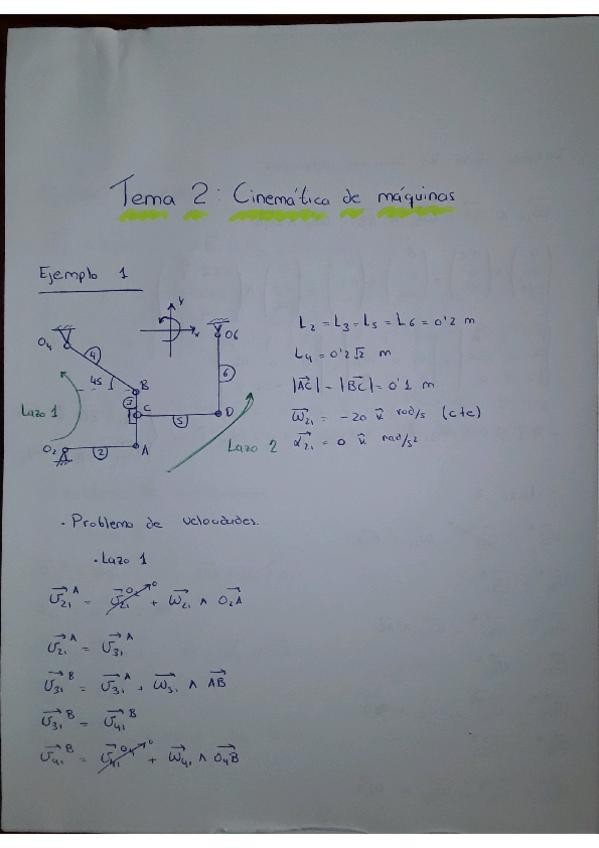 Tema 2: Cinemática de máquinas
Ejemplo 1
Y
x
O4
4
45
B
3
C
5
D
6
O6
Lazo 1
Lazo 2
O2
2
A
L2 = L3 = L5 = L6 = 0'2 m
L4 = 0'2√2 m
|AC⃗| = |BC⃗| = 0'1 m
ω⃗21 = -20 k⃗ rad/s (cte)
α⃗21 = 0 k⃗ rad/s²
· Problema de velocidades.
· Lazo 1
v⃗21^A = v⃗21^O2 → 0 + ω⃗21 ∧ O2A⃗
v⃗21^A = v⃗31^A
v⃗31^B = v⃗31^A + ω⃗31 ∧ AB⃗
v⃗31^B = v⃗41^B
v⃗41^B = v⃗41^O4 → 0 + ω⃗41 ∧ O4B⃗